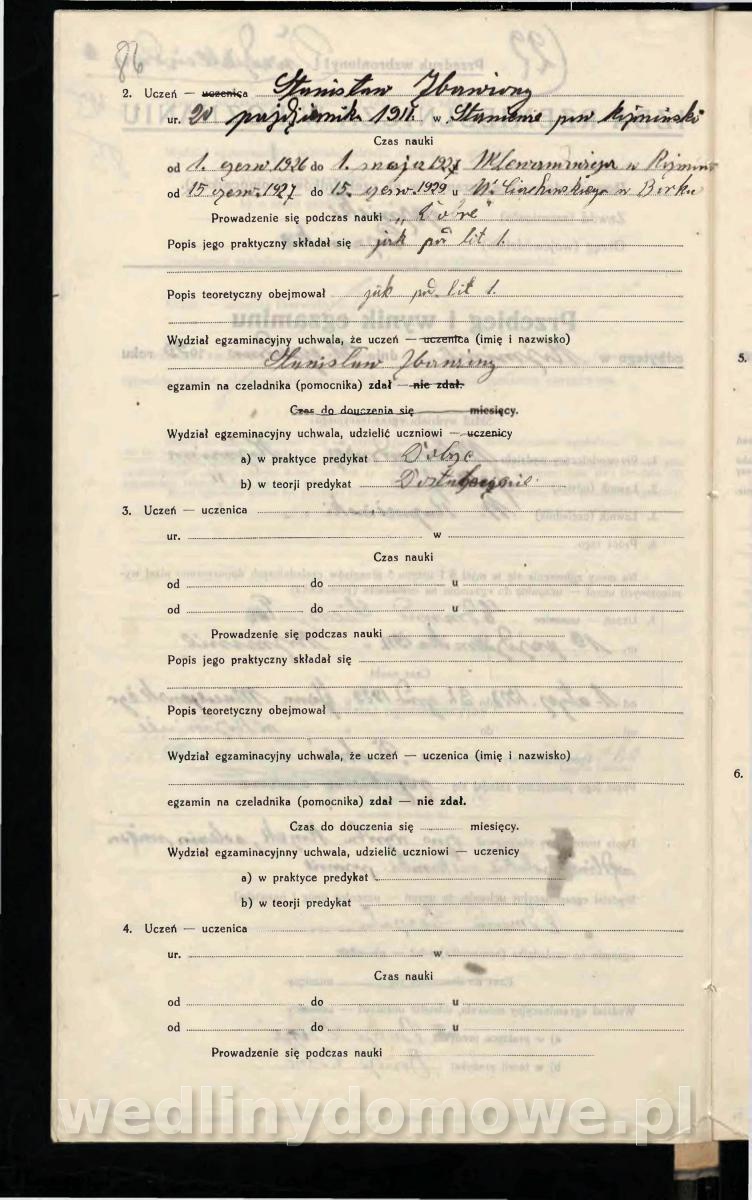 86
2. Uczeń — uczenica Stanisław Zbawiony
ur. 20 października 1911. w Staminie pow
Czas nauki
od 1. czerw. 1926 do 1. maja 1927 w
od 15 czerw. 1927 do 15. czerw. 1929 u w Borku
Prowadzenie się podczas nauki „Dobre"
Popis jego praktyczny składał się jak pod lit 1.
Popis teoretyczny obejmował jak pod lit 1.
Wydział egzaminacyjny uchwala, że uczeń — uczenica (imię i nazwisko)
Stanisław Zbawiony
egzamin na czeladnika (pomocnika) zdał — nie zdał.
Czas do douczenia się miesięcy.
Wydział egzeminacyjny uchwala, udzielić uczniowi — uczenicy
a) w praktyce predykat Dobrze
b) w teorji predykat Dostatecznie
3. Uczeń — uczenica
ur. w
Czas nauki
od do u
od do u
Prowadzenie się podczas nauki
Popis jego praktyczny składał się
Popis teoretyczny obejmował
Wydział egzaminacyjny uchwala, że uczeń — uczenica (imię i nazwisko)
egzamin na czeladnika (pomocnika) zdał — nie zdał.
Czas do douczenia się miesięcy.
Wydział egzaminacyjnny uchwala, udzielić uczniowi — uczenicy
a) w praktyce predykat
b) w teorji predykat
4. Uczeń — uczenica
ur. w
Czas nauki
od do u
od do u
Prowadzenie się podczas nauki
5.
6.
wedlinydomowe.pl